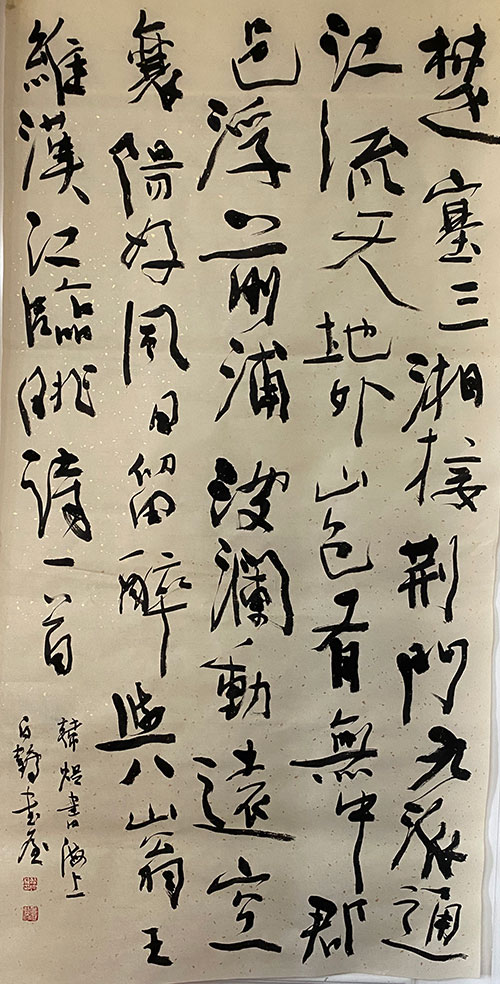 楚塞三湘接荆門九派通
江流天地外山色有無中郡
邑浮前浦波瀾動遠空
襄陽好風日留醉與山翁王
維漢江臨眺詩一首
韓書海上
書屋